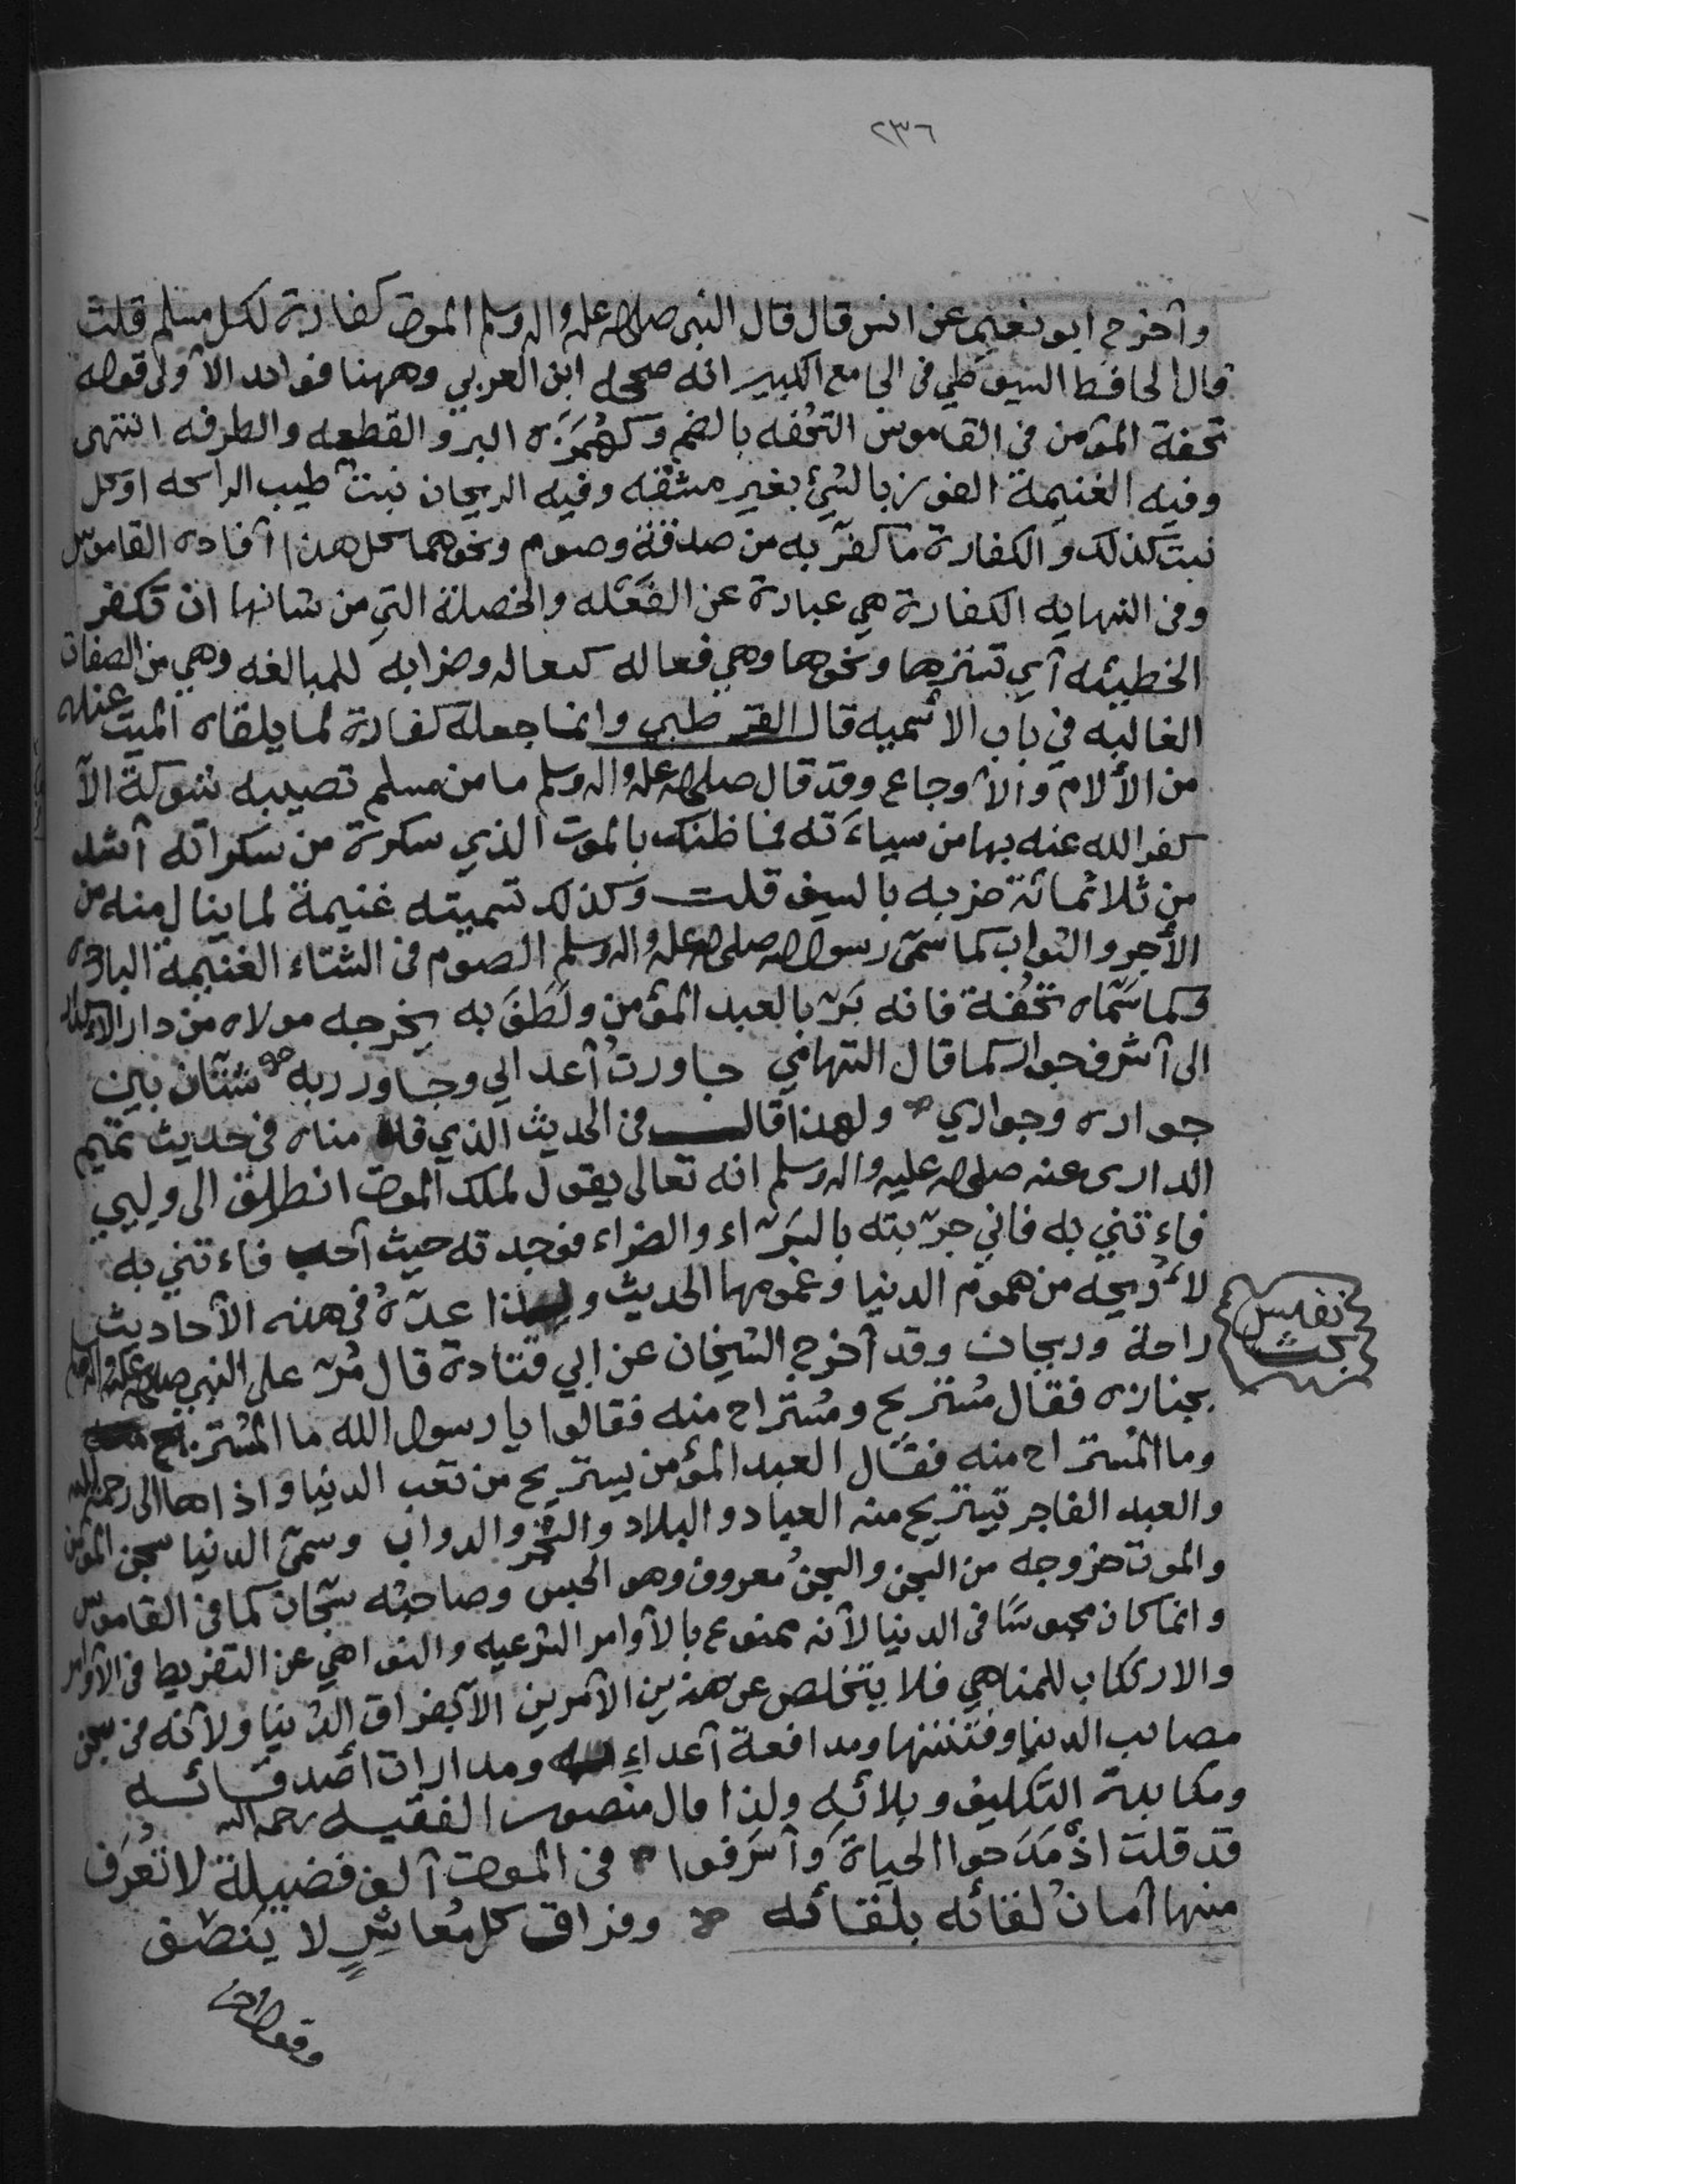 ٢٣٦
وأخرج ابو نعيم عن انس قال قال النبي صلى الله عليه واله وسلم الموت كفارة لكل مسلم قلت
قال الحافظ السيوطي في الجامع الكبير انه صححه ابن العربي وههنا فوائد الأولى قوله
تحفة المؤمن في القاموس التحفه بالضم وكهُمَزَه البر والقطعه والطرفه انتهى
وفيه الغنيمة الفوز بالشئ بغير مشقه وفيه الريحان نبت طيب الرائحه او كل
نبت كذلك والكفارة ما كفّر به من صدقة وصوم ونحوهما كل هذا أفاده القاموس
وفي النهايه الكفارة هي عبارة عن الفَعْله والخصلة التي من شانها ان تكفر
الخطيئه أي تسترها ونحوها وهي فعاله كعاله وضرابه للمبالغه وهي من الصفات
الغالبه في باب الأسميه قال القرطبي وانما جعله كفارة لما يلقاه الميت عنله
من الألام والأوجاع وقد قال صلى الله عليه واله وسلم ما من مسلم تصيبه شوكة الآ
كفر الله عنه بها من سياءَته فما ظنك بالموت الذي سكرة من سكراته أشد
من ثلاثمائة ضربه بالسيف قلت وكذلك تسميته غنيمة لما ينال منه من
الأجر والثواب كما سمّى رسول الله صلى الله عليه واله وسلم الصوم في الشتاء الغنيمة البارده
وكما سَمّاه تحُفة فانه بَرّ بالعبد المؤمن ولَطَفَ به يخرجه مولاه من دار الأكدار
الى أشرف جوار كما قال التهامي جاورتُ أعدائي وجاور ربه شتّان بين
جواره وجواري ولهذا قال في الحديث الذي قدمناه في حديث تميم
الدارى عنه صلى الله عليه واله وسلم انه تعالى يقول لملك الموت انطلق الى وليي
فاءتني به فاني جرّبته بالسَرّاء والضراء فوجدته حيث أحب فاءتني به
لأُريحه من هموم الدنيا وغمومها الحديث ولهذا عدّهُ في هذه الأحاديث
راحة وريحان وقد أخرج الشيخان عن ابي قتادة قال مُرّ على النبي صلى الله عليه واله وسلم
بجنازه فقال مُستريح ومُستراح منه فقالوا يا رسول الله ما المُستريح
وما المُستراح منه فقال العبد المؤمن يستريح من تعب الدنيا واذاها الى رحمة الله
والعبد الفاجر تيتريح منه العباد والبلاد والشجر والدواب وسمّى الدنيا سجن المؤمن
والموت خروجه من السجن والسجنُ معروف وهو الحبس وصاحبُه سّجان كما في القاموس
وانما كان محبوسًا في الدنيا لأنه ممنوع بالأوامر الشرعيه والنواهي عن التفريط في الأوامر
والارتكاب للمناهي فلا يتخلص عن هذين الأمرين الآ بفراق الدُنيا ولأنه في سجن
مصائب الدنيا وفتنتها ومدافعة أعداءِ الله ومدارات أصدقائه
ومكابدة التكليف وبلائه ولذا قال منصور الفقيه رحمه الله
قد قلت اذْ مَدَحوا الحياةَ وأسرفوا في الموت ألف فضيلة لا تُعرَف
منها أمانُ لقائه بلقائه وفراق كل مُعاشِرٍ لا ينصف
وقوله
نفيس
بحث